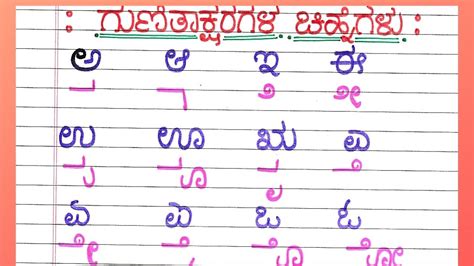 : ಗುಣಿತಾಕ್ಷರಗಳ ಚಿಹ್ನೆಗಳು :
ಅ ಆ ಇ ಈ
ಾ ಿ ೀ
ಉ ಊ ಋ ಎ
ು ೂ ೃ ೆ
ಏ ಐ ಒ ಓ
ೇ ೈ ೊ ೋ